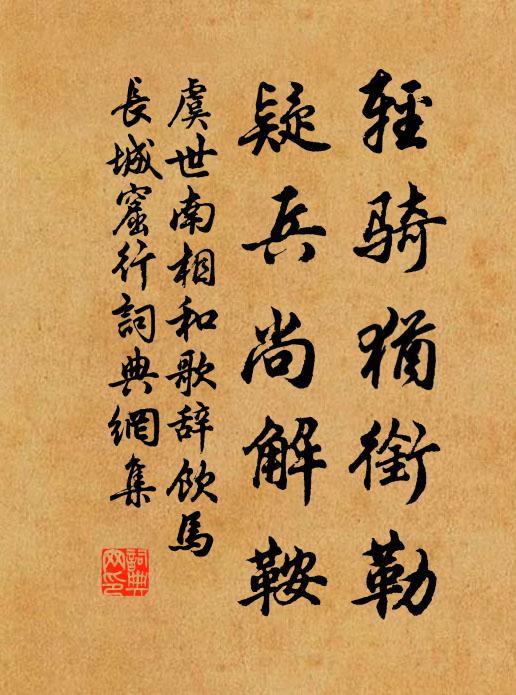 輕騎猶銜勒
疑兵尚解鞍
虞世南相和歌辞飲馬
長城窟行詞典網集
詞典網印